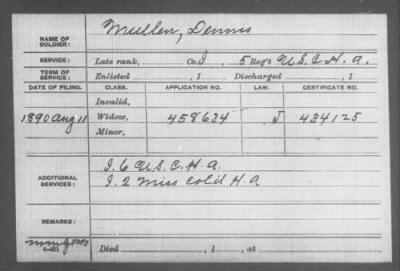 NAME OF SOLDIER: Mullen, Dennis
SERVICE: Late rank, Co. I, 5 Reg't U.S.C.H.A.
TERM OF SERVICE: Enlisted , 1 Discharged , 1
DATE OF FILING. CLASS. APPLICATION NO. LAW. CERTIFICATE NO.
Invalid,
1890 Aug 11 Widow, 458634 J 434125
Minor,
ADDITIONAL SERVICES: I. 6 U.S.C.H.A.
I. 2 Miss Col'd H.A
REMARKS:
Died , 1 , at